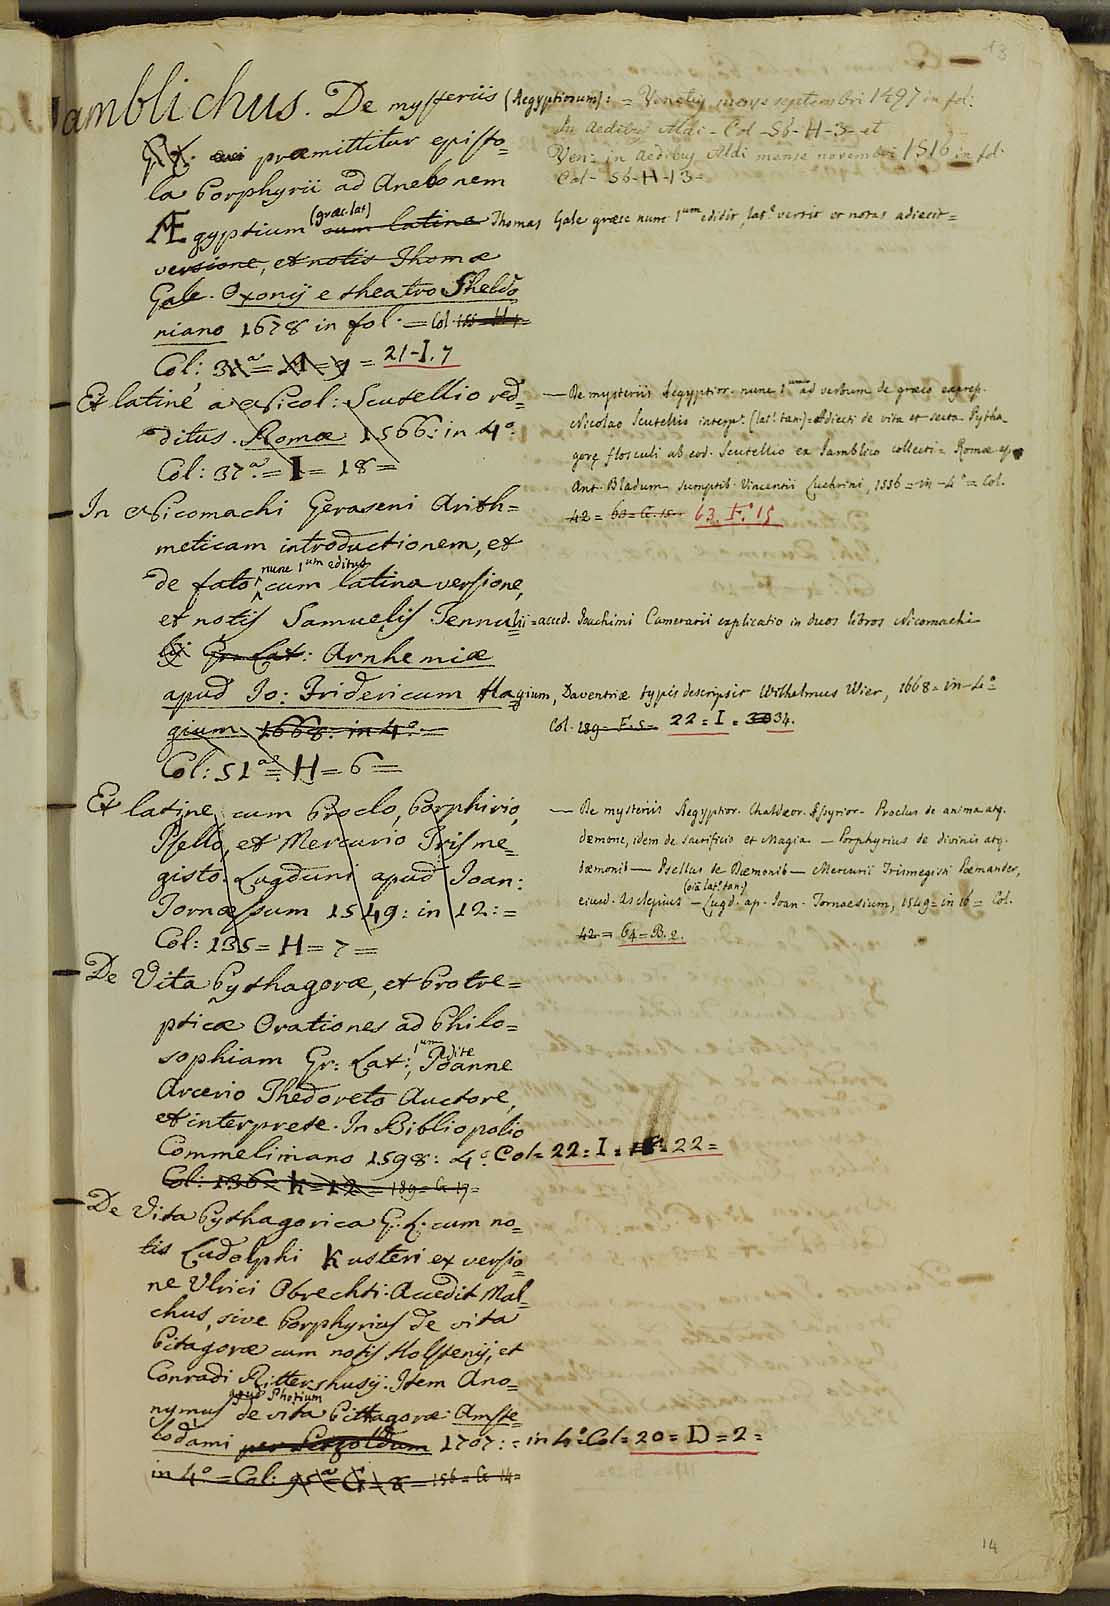 13
Jamblichus. De mysteriis (Aegyptiorum): = Venetijs mense septembri 1497 in fol:
In aedibus Aldi - Col - 56 - H - 3 = et
Ven: in aedibus Aldi mense novembri 1516 in fol.
Col - 56 - H - 13 =
præmittitur episto=
la Porphyrii ad Anebonem
Ægyptium (græc. lat) cum latina Thomas Gale græce nunc 1um edidit, lat.e vertit et notas adiecit =
versione, et notis Thomæ
Gale. Oxonij e theatro Sheldo
niano 1678 in fol. = Col
Col: = 21-I. 7
Et latinè a Nicol: Scutellio red=
ditus. Romæ 1566: in 4o:
Col: 37a = I = 18 =
— De mysteriis Aegyptior. nunc 1um ad verbum de græco expres.
Nicolao Scutellio interp.e (lat.e tan.) = Adiecti de vita et secta Pytha=
goræ flosculi ab eod. Scutellio ex Jamblico collecti = Romæ ap.
Ant. Bladum sumptib. Vincentii Luchrini, 1556 = in - 4o = Col.
42 = 63. F. 15
In Nicomachi Geraseni Arith=
meticam introductionem, et
de fato nunc 1um editus cum latina versione,
et notis Samuelis Tennulii = acced. Joachimi Camerarii explicatio in duos libros Nicomachi
lij Gr: Lat: Arnhemiæ
apud Jo: Fridericum Hagium, Daventriæ typis descripsit Wilhelmus Wier, 1668 = in 4o
gium 1668: in 4o =
Col. 189 - F. 5 = 22 = I = 34.
Col: 51a = H = 6 =
Et latine cum Proclo, Porphirio,
Psello, et Mercurio Trisme=
gisto. Lugduni apud Joan:
Tornæsium 1549: in 12: =
Col: 135 = H = 7 =
— De mysteriis Aegyptior. Chaldæor. Assyrior. Proclus de anima atq.
dæmone, idem de sacrificio et Magia — Porphyrius de divinis atq.
dæmonib — Psellus de Dæmonib — Mercurii Trismegisti Pæmander,
eiusd. Asclepius (oia lat.e tan.) — Lugd. ap. Joan. Tornaesium, 1549 = in 16 = Col.
42 = 64 = B. 2.
De Vita Pythagoræ, et Protre=
pticæ Orationes ad Philo=
sophiam Gr: Lat:, 1um edite Joanne
Arcerio Thedoreto Auctore,
et interprete. In Bibliopolio
Commeliniano 1598: 4o: Col = 22 = I = 22 =
Col: 136 = K = 12 = 189 = G 19 =
De Vita Pythagorica G. L. cum no=
tis Ludolphi Kusteri ex versio=
ne Ulrici Obrechti. Accedit Mal=
chus, sive Porphyrius de vita
Pitagoræ cum notis Holstenij, et
Conradi Rittershusij. Item Ano=
nymus apud Photium de vita Pittagoræ Amste=
lodami 1707: = in 4o Col = 20 = D = 2 =
in 4o = Col: = 156 = G 14 =
14